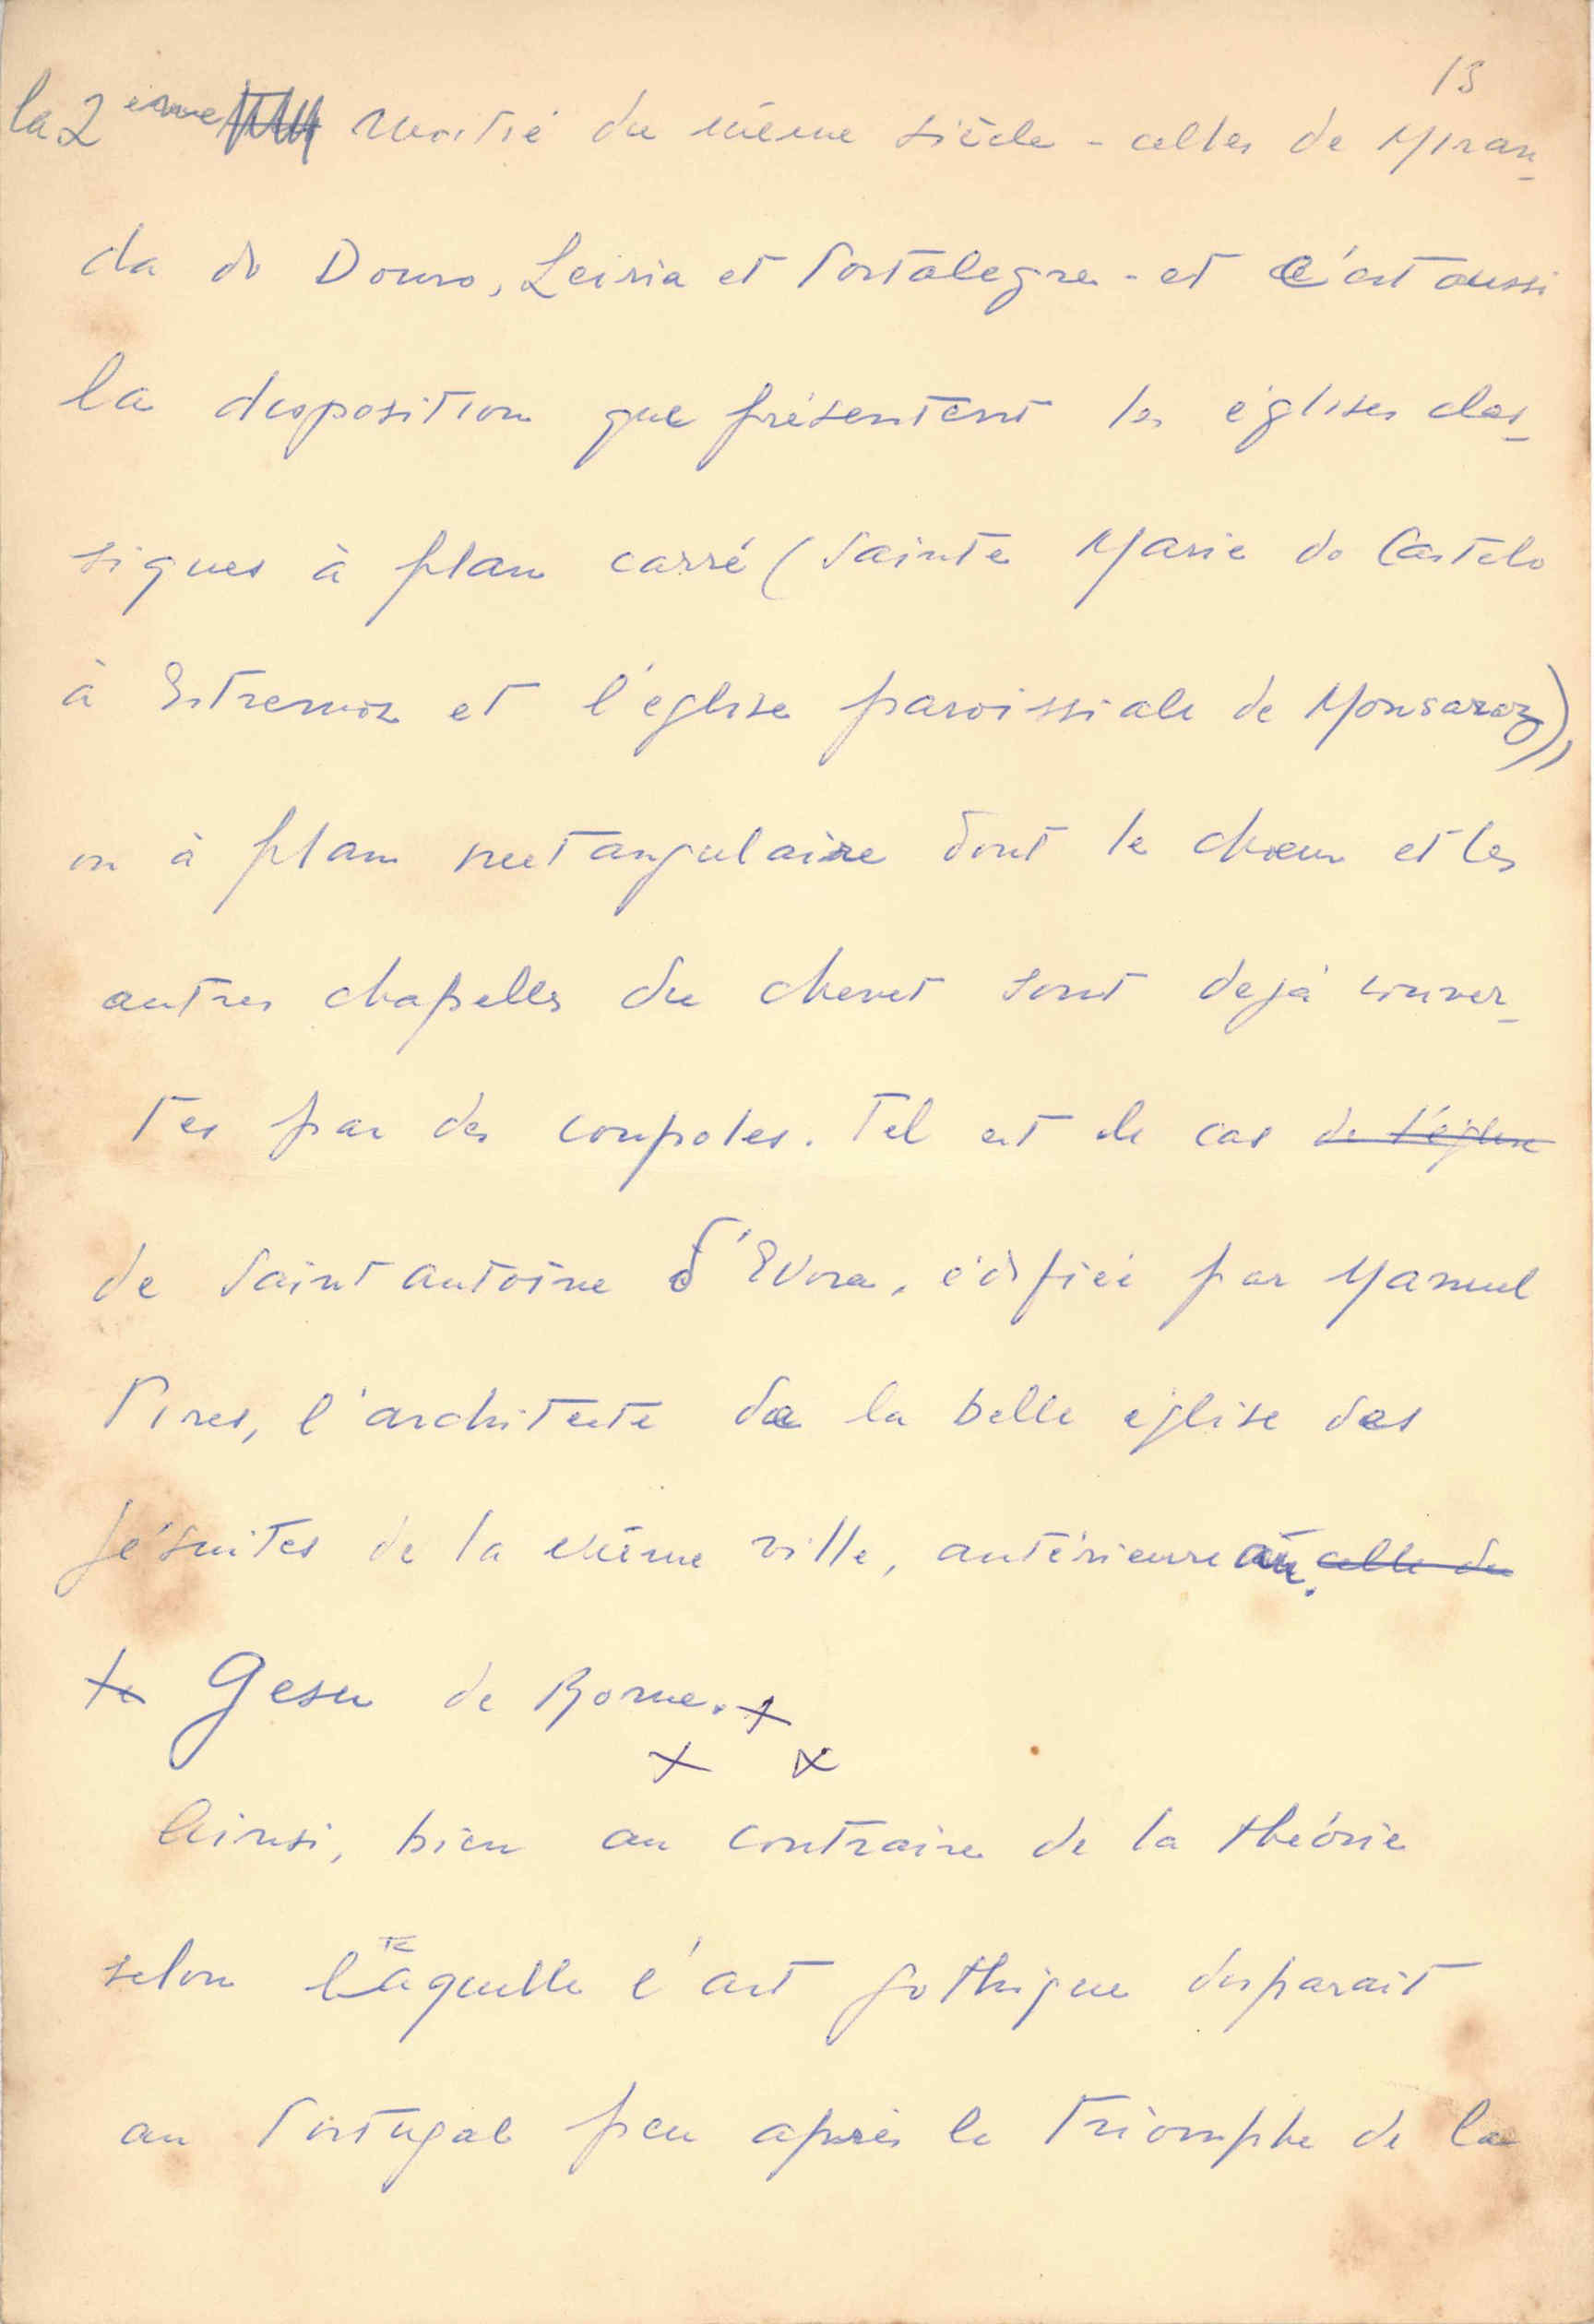 13
la 2ème moitié du même siècle - celles de Miran-
da do Douro, Leiria et Portalegre - et c'est aussi
la disposition que présentent les églises clas-
siques à plan carré (Sainte Marie do Castelo
à Estremoz et l'église paroissiale de Monsaraz),
ou à plan rectangulaire dont le chœur et les
autres chapelles du chevet sont dejà couver-
tes par des coupoles. Tel est le cas de l'église
de Saint Antoine d'Evora, édifiée par Manuel
Pires, l'architecte de la belle église des
Jésuites de la même ville, antérieure au celle du
te Gesu de Rome. +
+ x
Ainsi, bien au contraire de la théorie
selon laquelle l'art gothique disparait
au Portugal peu après le triomphe de la